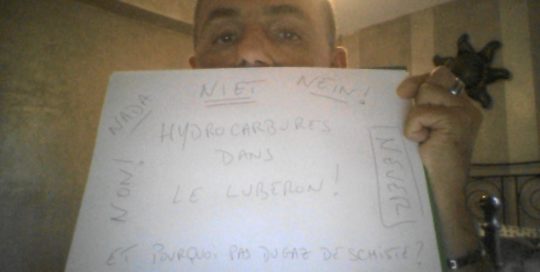 NIET
NEIN!
NADA
NON!
HYDROCARBURES
DANS
LE LUBERON!
NEVER
ET POURQUOI PAS DU GAZ DE SCHISTE?